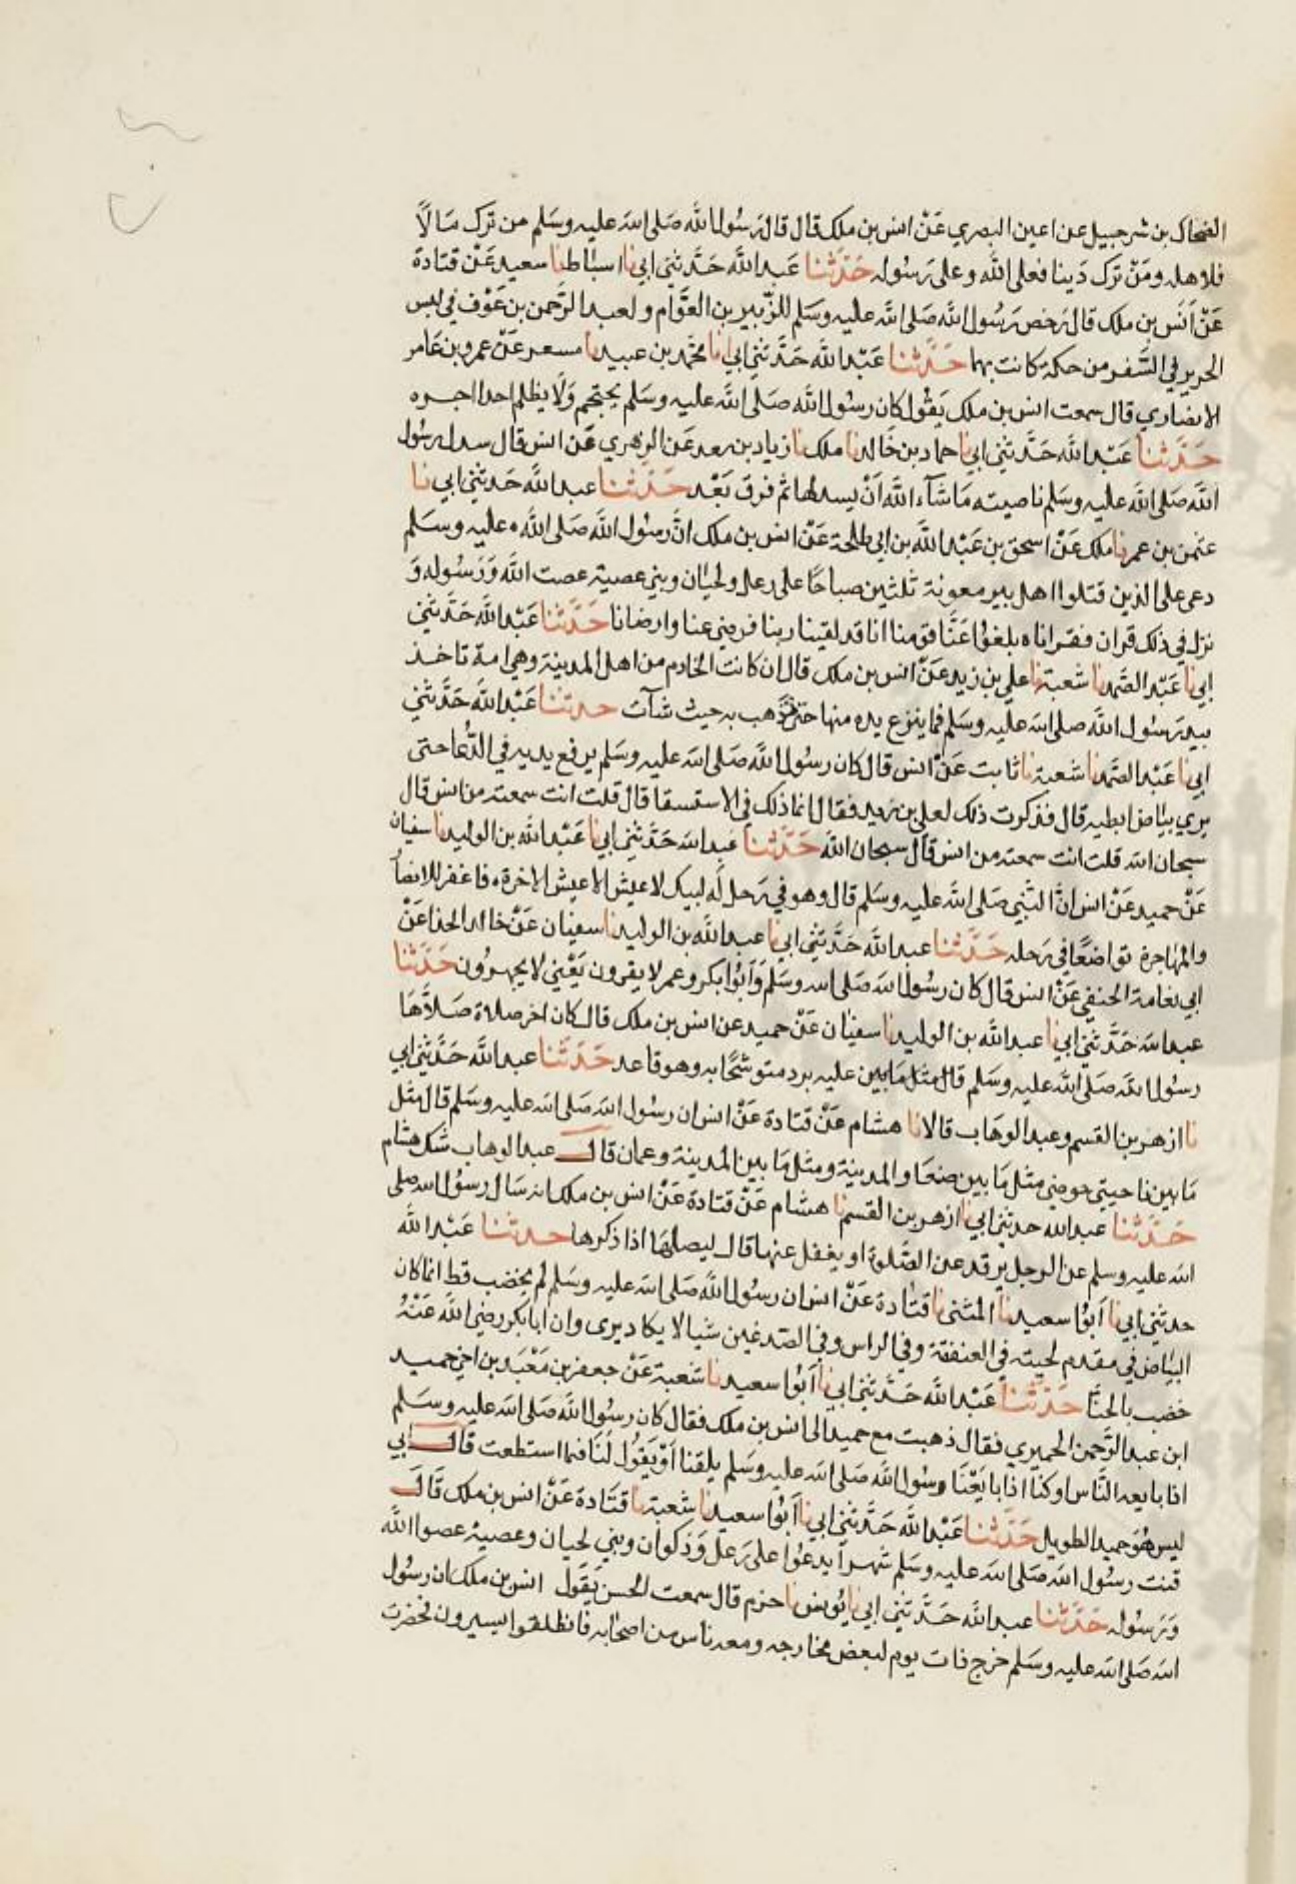 الضحاك بن شرحبيل عن اعين البصري عَنْ انس بن ملك قال قال رَسُول الله صَلى الله عليه وسَلم من ترك مَالاً
فلاهله ومَنْ ترك دَينا فعلى الله وعلى رَسُوله حَدَّثنا عَبد الله حَدَّثني ابي نا اسباط نا سعيد عَنْ قتادة
عَنْ اَنَس بن ملك قال رَخص رَسُول الله صَلى الله عليه وسَلم للزبير بن العَوَّام ولعبد الرَّحمن بن عَوْف في لبس
الحرير في السَّفر من حكة كانت بهما حَدَّثنا عَبْد الله حَدَّثني ابي نا محمَّد بن عبيد نا مسعر عَنْ عمرو بن عَامر
الانصاري قال سمعت انس بن ملك يَقُول كان رسُول الله صَلى الله عليه وسَلم يحتجم وَلَا يظلم احدا اجره
حَدَّثنا عَبْد الله حَدَّثني ابي نا حماد بن خَالد نا ملك نا زياد بن سعد عَن الزهري عَن انس قال سدل رسُول
الله صَلى الله عليه وسَلم ناصيته مَا شآء الله اَنْ يسدلها ثم فرق بَعْد حَدَّثنا عبد الله حَدثني ابي نا
عثمن بن عمر نا ملك عَنْ اسحق بن عَبْد الله بن ابي طلحة عَنْ انس بن ملك انَّ رسُول الله صَلى الله عليه وسَلم
دعى على الذين قتلوا اهل بير معونة ثلثين صباحًا على رعل ولحيَان وبني عصية عصت الله وَرَسُوله وَ
نزل في ذلك قران فقراناه بلغوا عَنَّا قومنا انا قد لقينا ربنا فرضي عنا وارضانا حَدَّثنا عَبْد الله حَدَّثني
ابي نا عَبْد الصَّمد نا شعبة نا علي بن زيد عَنْ انس بن ملك قال ان كانت الخادم من اهل المدينة وهي امة تاخذ
بيد رَسُول الله صلى الله عليه وسَلم فما ينزع يده منها حتى تذهب به حيث شآت حدثنا عَبْد الله حَدَّثني
ابي نا عَبْد الصَّمد نا شعبة نا ثابت عَنْ انس قال كان رسُول الله صَلى الله عليه وسَلم يرفع يديه في الدُّعا حتى
يري بياض ابطيه قال فذكرت ذلك لعلي بن زيد فقال انما ذلك في الاستسقا قال قلت انت سمعته من انس قال
سبحان الله قلت انت سمعته من انس قال سبحان الله حَدَّثنا عَبد الله حَدَّثني ابي نا عَبْد الله بن الوليد نا سفيان
عَنْ حميد عَنْ انس انَّ النَّبي صَلى الله عليه وسَلم قال وهو في رَحل لَه لبيك لا عيش الا عيش الاخرة فاغفر للانصار
والمهاجرة تواضعًا في رَحله حَدَّثنا عبد الله حَدَّثني ابي نا عبد الله بن الوليد نا سفيان عَنْ خالد الحذا عَنْ
ابي نعامة الحنفي عَنْ انس قال كان رسُول الله صَلى الله وسَلم وَاَبُوا بكر وعمر لا يقرون يَعْني لا يجهرُون حَدَّثنا
عبد الله حَدَّثني ابي نا عبد الله بن الوليد نا سفيَان عَنْ حميد عن انس بن ملك قال كان اخر صلاة صَلاَّهَا
رسُول الله صَلى الله عليه وسَلم قال مثل مَا بين عليه برد متوشحًا به وهو قاعد حَدَّثنا عبد الله حَدَّثني ابي
نا ازهر بن القسم وعبد الوهاب قالا نا هشام عَنْ قتادة عَنْ انس ان رسُول الله صَلى الله عليه وسَلم قال مثل
مَا بين ناحيتي حوضي مثل مَا بين صنعَا والمدينة ومثل مَا بين المدينة وعمان قال عبد الوهاب شك هشام
حَدَّثنا عبد الله حدثني ابي نا ازهر بن القسم نا هشام عَنْ قتادة عَنْ انس بن ملك انه سَال رسُول الله صلى
الله عليه وسلم عن الرجل يرقد عن الصَّلوة او يغفل عنها قال ليصلهَا اذا ذكرها حدثنا عَبْد الله
حدثني ابي نا اَبُوا سعيد نا المثنى نا قتادة عَنْ انس ان رسُول الله صَلى الله عليه وسَلم لم يخضب قط انما كان
البيَاض في مقدم لحيته في العنفقة وفي الراس وفي الصَّدغين شيا لا يكاد يرى وان ابا بكر رضي الله عَنْهُ
خضب بالحنَّا حَدَّثنا عَبْد الله حَدَّثني ابي نا اَبُوا سعيد نا شعبة عَنْ جعفر بن مَعْبَد بن اخي حميد
ابن عبد الرَّحمن الحميري فقال ذهبت مع حميد الى انس بن ملك فقال كان رسُول الله صَلى الله عليه وسَلم
اذا بايعه النَّاس او كنا اذا بايَعْنَا رسُول الله صَلى الله عليه وسَلم يلقنا اَوْ يَقُول لَنَا فيما استطعت قال ابي
ليس هُوَ حميد الطويل حَدَّثنا عَبْد الله حَدَّثني ابي نا اَبُوا سعيد نا شعبة نا قتَادة عَنْ انس بن ملك قَالَ
قنت رسُول الله صَلى الله عليه وسَلم شهرًا يدعُوا على رَعل وَذكوان وبني لحيان وعصية عصوا الله
وَرَسُوله حَدَّثنا عبد الله حَدَّثني ابي نا يُونس نا حزم قال سمعت الحسن يَقول انس بن ملك ان رسُول
الله صَلى الله عليه وسَلم خرج ذات يوم لبعض مخارجه ومعه ناس من اصحابه فانطلقوا يسيرون فحضرت